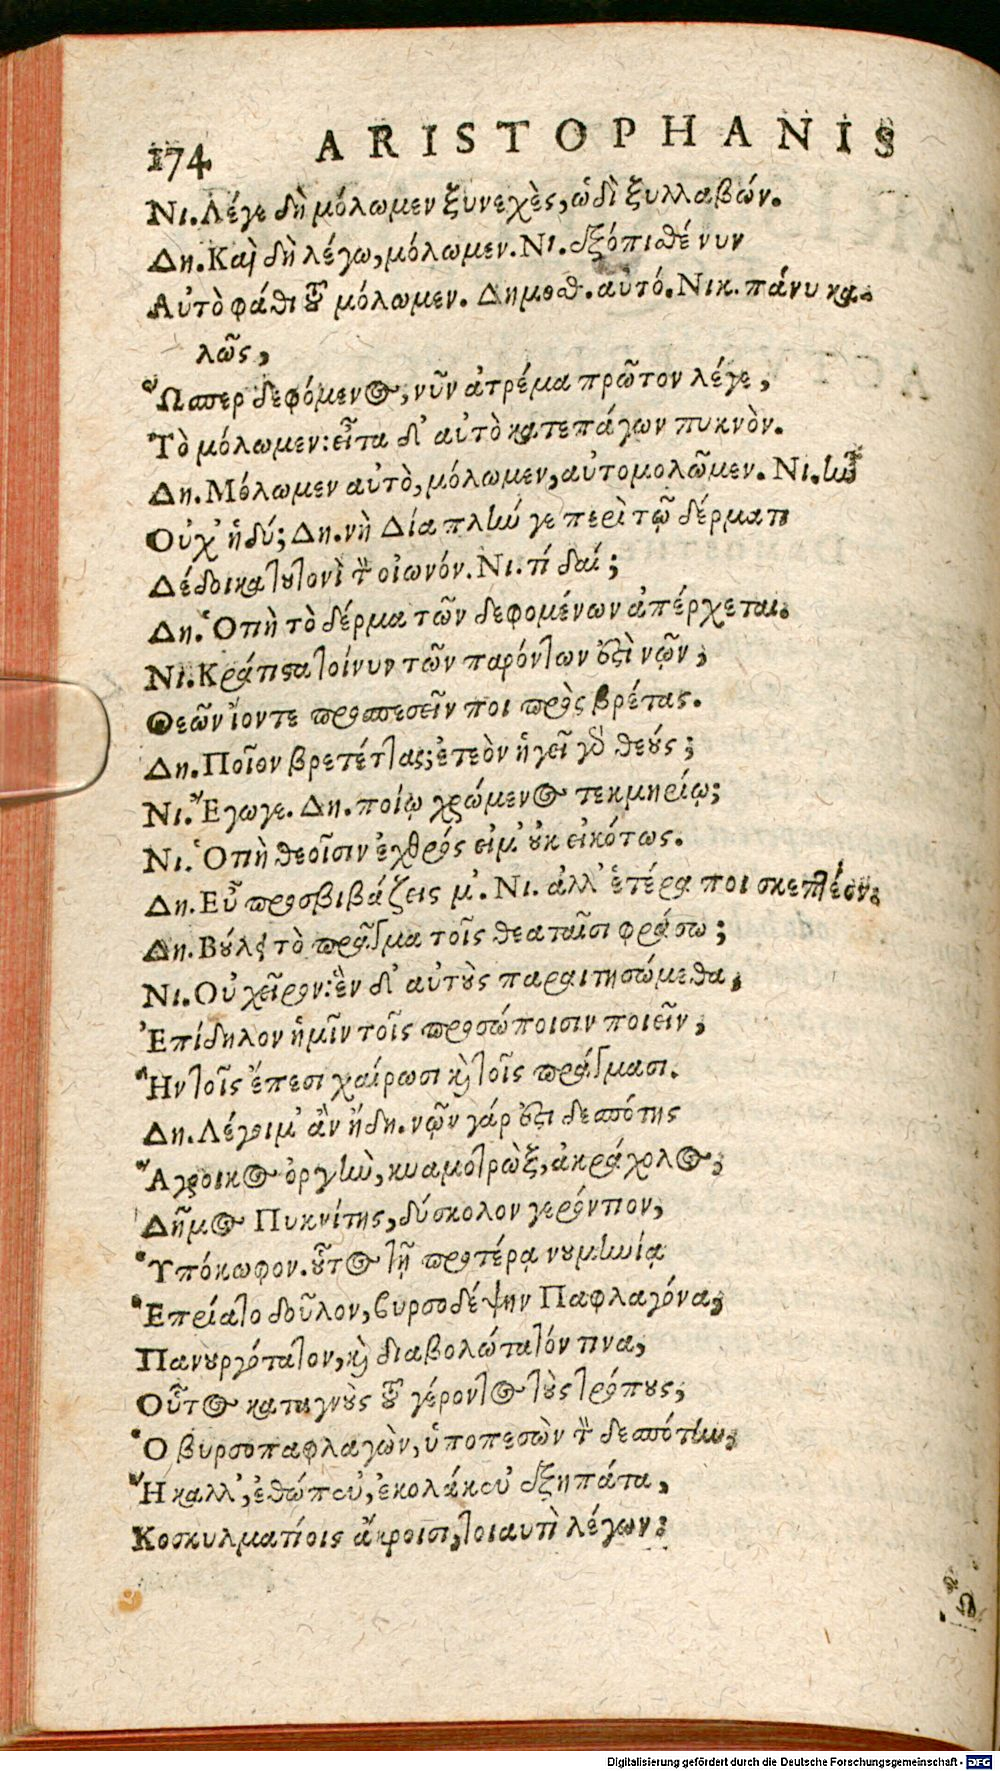 174 ARISTOPHANIS
Νι. Λέγε δὴ μόλωμεν ξυνεχὲς, ὡδὶ ξυλλαβών.
Δη. Καὶ δὴ λέγω, μόλωμεν. Νι. ἐξόπισθέ νυν
Αὐτὸ φάθι τοῦ μόλωμεν. Δημοσθ. αὐτό. Νικ. πάνυ κα-
λῶς,
Ὥσπερ δεφόμενος, νῦν ἀτρέμα πρῶτον λέγε,
Τὸ μόλωμεν: εἶτα δ' αὐτὸ κατεπάγων πυκνὸν.
Δη. Μόλωμεν αὐτὸ, μόλωμεν, αὐτομολῶμεν. Νι. ἦν
Οὐχ' ἡδύ; Δη. νὴ Δία πλήν γε περὶ τῷ δέρματι
Δέδοικα τουτονὶ τὸν οἰωνόν. Νι. τί δαί;
Δη. Ὁπὴ τὸ δέρμα τῶν δεφομένων ἀπέρχεται.
Νι. Κράτιστα τοίνυν τῶν παρόντων ἐστὶ νῷν,
Θεῶν ἰόντε προσπεσεῖν ποι πρὸς βρέτας.
Δη. Ποῖον βρετέττας; ἐτεὸν ἡγεῖ γὰρ θεούς;
Νι. Ἔγωγε. Δη. ποίῳ χρώμενος τεκμηρίῳ;
Νι. Ὁπὴ θεοῖσιν ἐχθρός εἰμ' οὐκ εἰκότως.
Δη. Εὖ προσβιβάζεις μ'. Νι. ἀλλ' ἑτέρα ποι σκεπτέον.
Δη. Βούλει τὸ πρᾶγμα τοῖς θεαταῖσι φράσω;
Νι. Οὐ χεῖρον: ἓν δ' αὐτοὺς παραιτησώμεθα,
Ἐπίδηλον ἡμῖν τοῖς προσώποισιν ποιεῖν,
Ἢν τοῖς ἔπεσι χαίρωσι καὶ τοῖς πράγμασι.
Δη. Λέγοιμ' ἂν ἤδη. νῷν γάρ ἐστι δεσπότης
Ἄγροικος ὀργὴν, κυαμοτρὼξ, ἀκράχολος,
Δῆμος Πυκνίτης, δύσκολον γερόντιον,
Ὑπόκωφον. οὗτος τῇ προτέρᾳ νουμηνίᾳ
Ἐπρίατο δοῦλον, βυρσοδέψην Παφλαγόνα,
Πανουργότατον, καὶ διαβολώτατόν τινα,
Οὗτος καταγνοὺς τοῦ γέροντος τοὺς τρόπους,
Ὁ βυρσοπαφλαγὼν, ὑποπεσὼν τὸν δεσπότην,
Ἤκαλλ', ἐθώπευ', ἐκολάκευ' ἐξηπάτα,
Κοσκυλματίοις ἄκροισι, τοιαυτὶ λέγων:
Digitalisierung gefördert durch die Deutsche Forschungsgemeinschaft - DFG